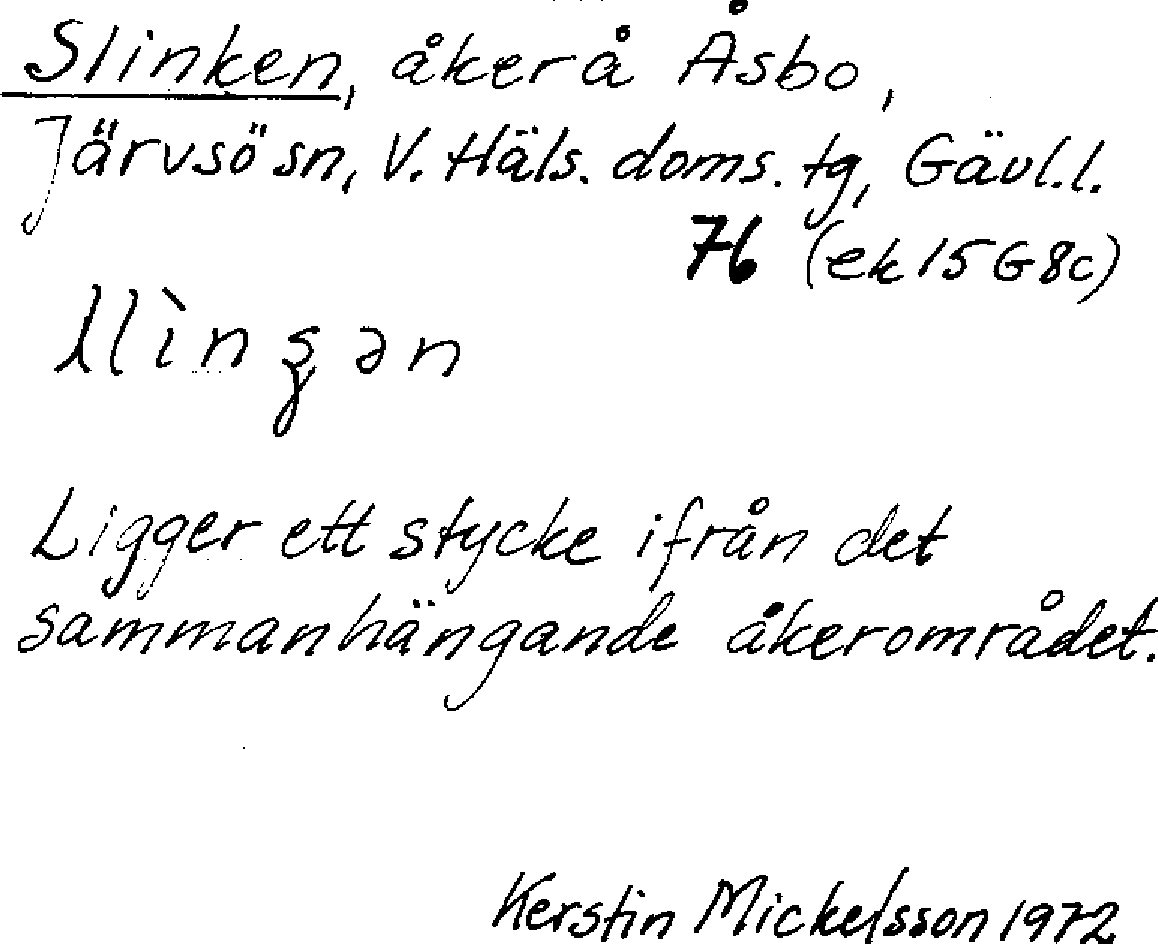 Slinken, åker å Åsbo,
Järvsö sn, V. Häls. doms. tg, Gävl.l.
76 (ek 15 G 8c)
Ligger ett stycke ifrån det
sammanhängande åkerområdet.
Kerstin Mickelsson 1972